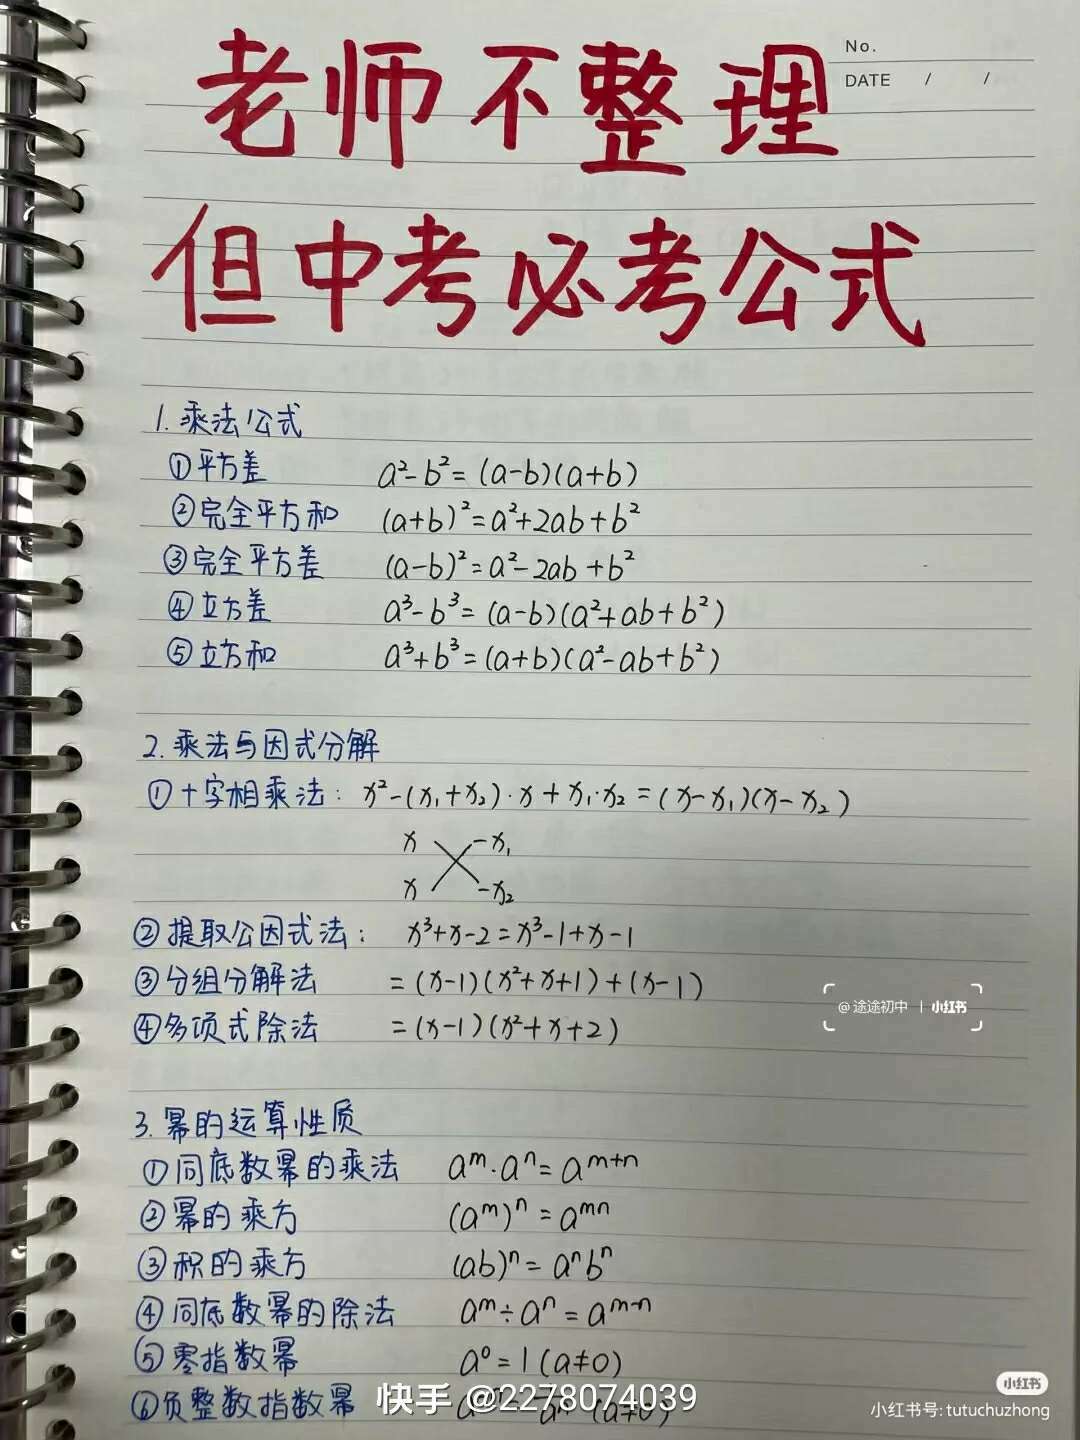 老师不整理
No.
DATE / /
但中考必考公式
1. 乘法公式
①平方差 a²-b²=(a-b)(a+b)
②完全平方和 (a+b)²=a²+2ab+b²
③完全平方差 (a-b)²=a²-2ab+b²
④立方差 a³-b³=(a-b)(a²+ab+b²)
⑤立方和 a³+b³=(a+b)(a²-ab+b²)
2. 乘法与因式分解
①十字相乘法: x²-(x₁+x₂)·x+x₁·x₂=(x-x₁)(x-x₂)
x -x₁
x -x₂
②提取公因式法: x³+x-2=x³-1+x-1
③分组分解法 =(x-1)(x²+x+1)+(x-1)
④多项式除法 =(x-1)(x²+x+2)
@途途初中 | 小红书
3. 幂的运算性质
①同底数幂的乘法 aᵐ·aⁿ=aᵐ⁺ⁿ
②幂的乘方 (aᵐ)ⁿ=aᵐⁿ
③积的乘方 (ab)ⁿ=aⁿbⁿ
④同底数幂的除法 aᵐ÷aⁿ=aᵐ⁻ⁿ
⑤零指数幂 a⁰=1(a≠0)
⑥负整数指数幂
快手 @2278074039
小红书
小红书号: tutuchuzhong